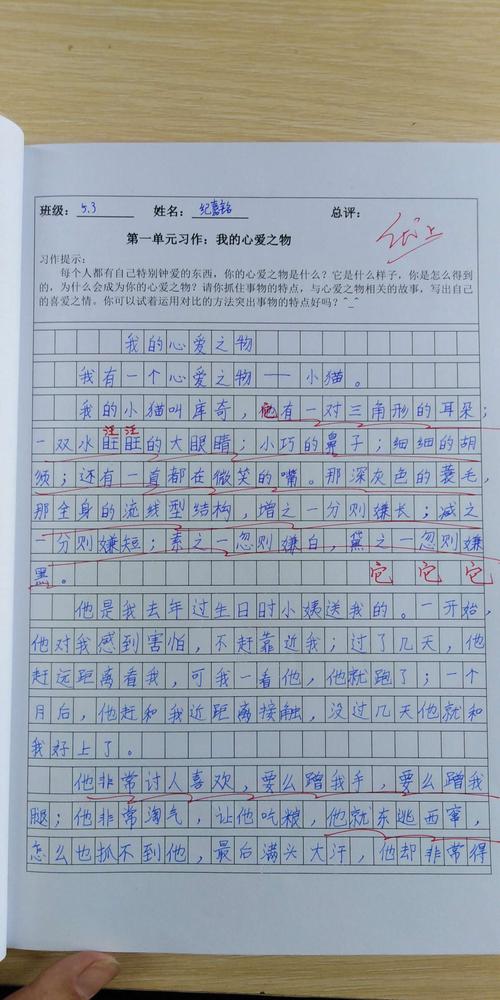 班级：5.3 姓名：纪嘉铭 总评：优上
第一单元习作：我的心爱之物
习作提示：
每个人都有自己特别钟爱的东西，你的心爱之物是什么？它是什么样子，你是怎么得到
的，为什么会成为你的心爱之物？请你抓住事物的特点，与心爱之物相关的故事，写出自己
的喜爱之情。你可以试着运用对比的方法突出事物的特点好吗？^_^
我的心爱之物
我有一个心爱之物——小猫。
我的小猫叫库奇，他有一对三角形的耳朵；
汪汪
一双水旺旺的大眼睛；小巧的鼻子；细细的胡
须；还有一直都在微笑的嘴。那深灰色的蓑毛，
那全身的流线型结构，增之一分则嫌长；减之
一分则嫌短；素之一忽则嫌白，黛之一忽则嫌
黑。 它它它
他是我去年过生日时小姨送我的。一开始，
他对我感到害怕，不赶靠近我；过了几天，他
赶远距离看我，可我一看他，他就跑了；一个
月后，他赶和我近距离接触，没过几天他就和
我好上了。
他非常讨人喜欢，要么蹭我手，要么蹭我
腿；他非常淘气，让他吃粮，他就东逃西窜，
怎么也抓不到他，最后满头大汗，他却非常得